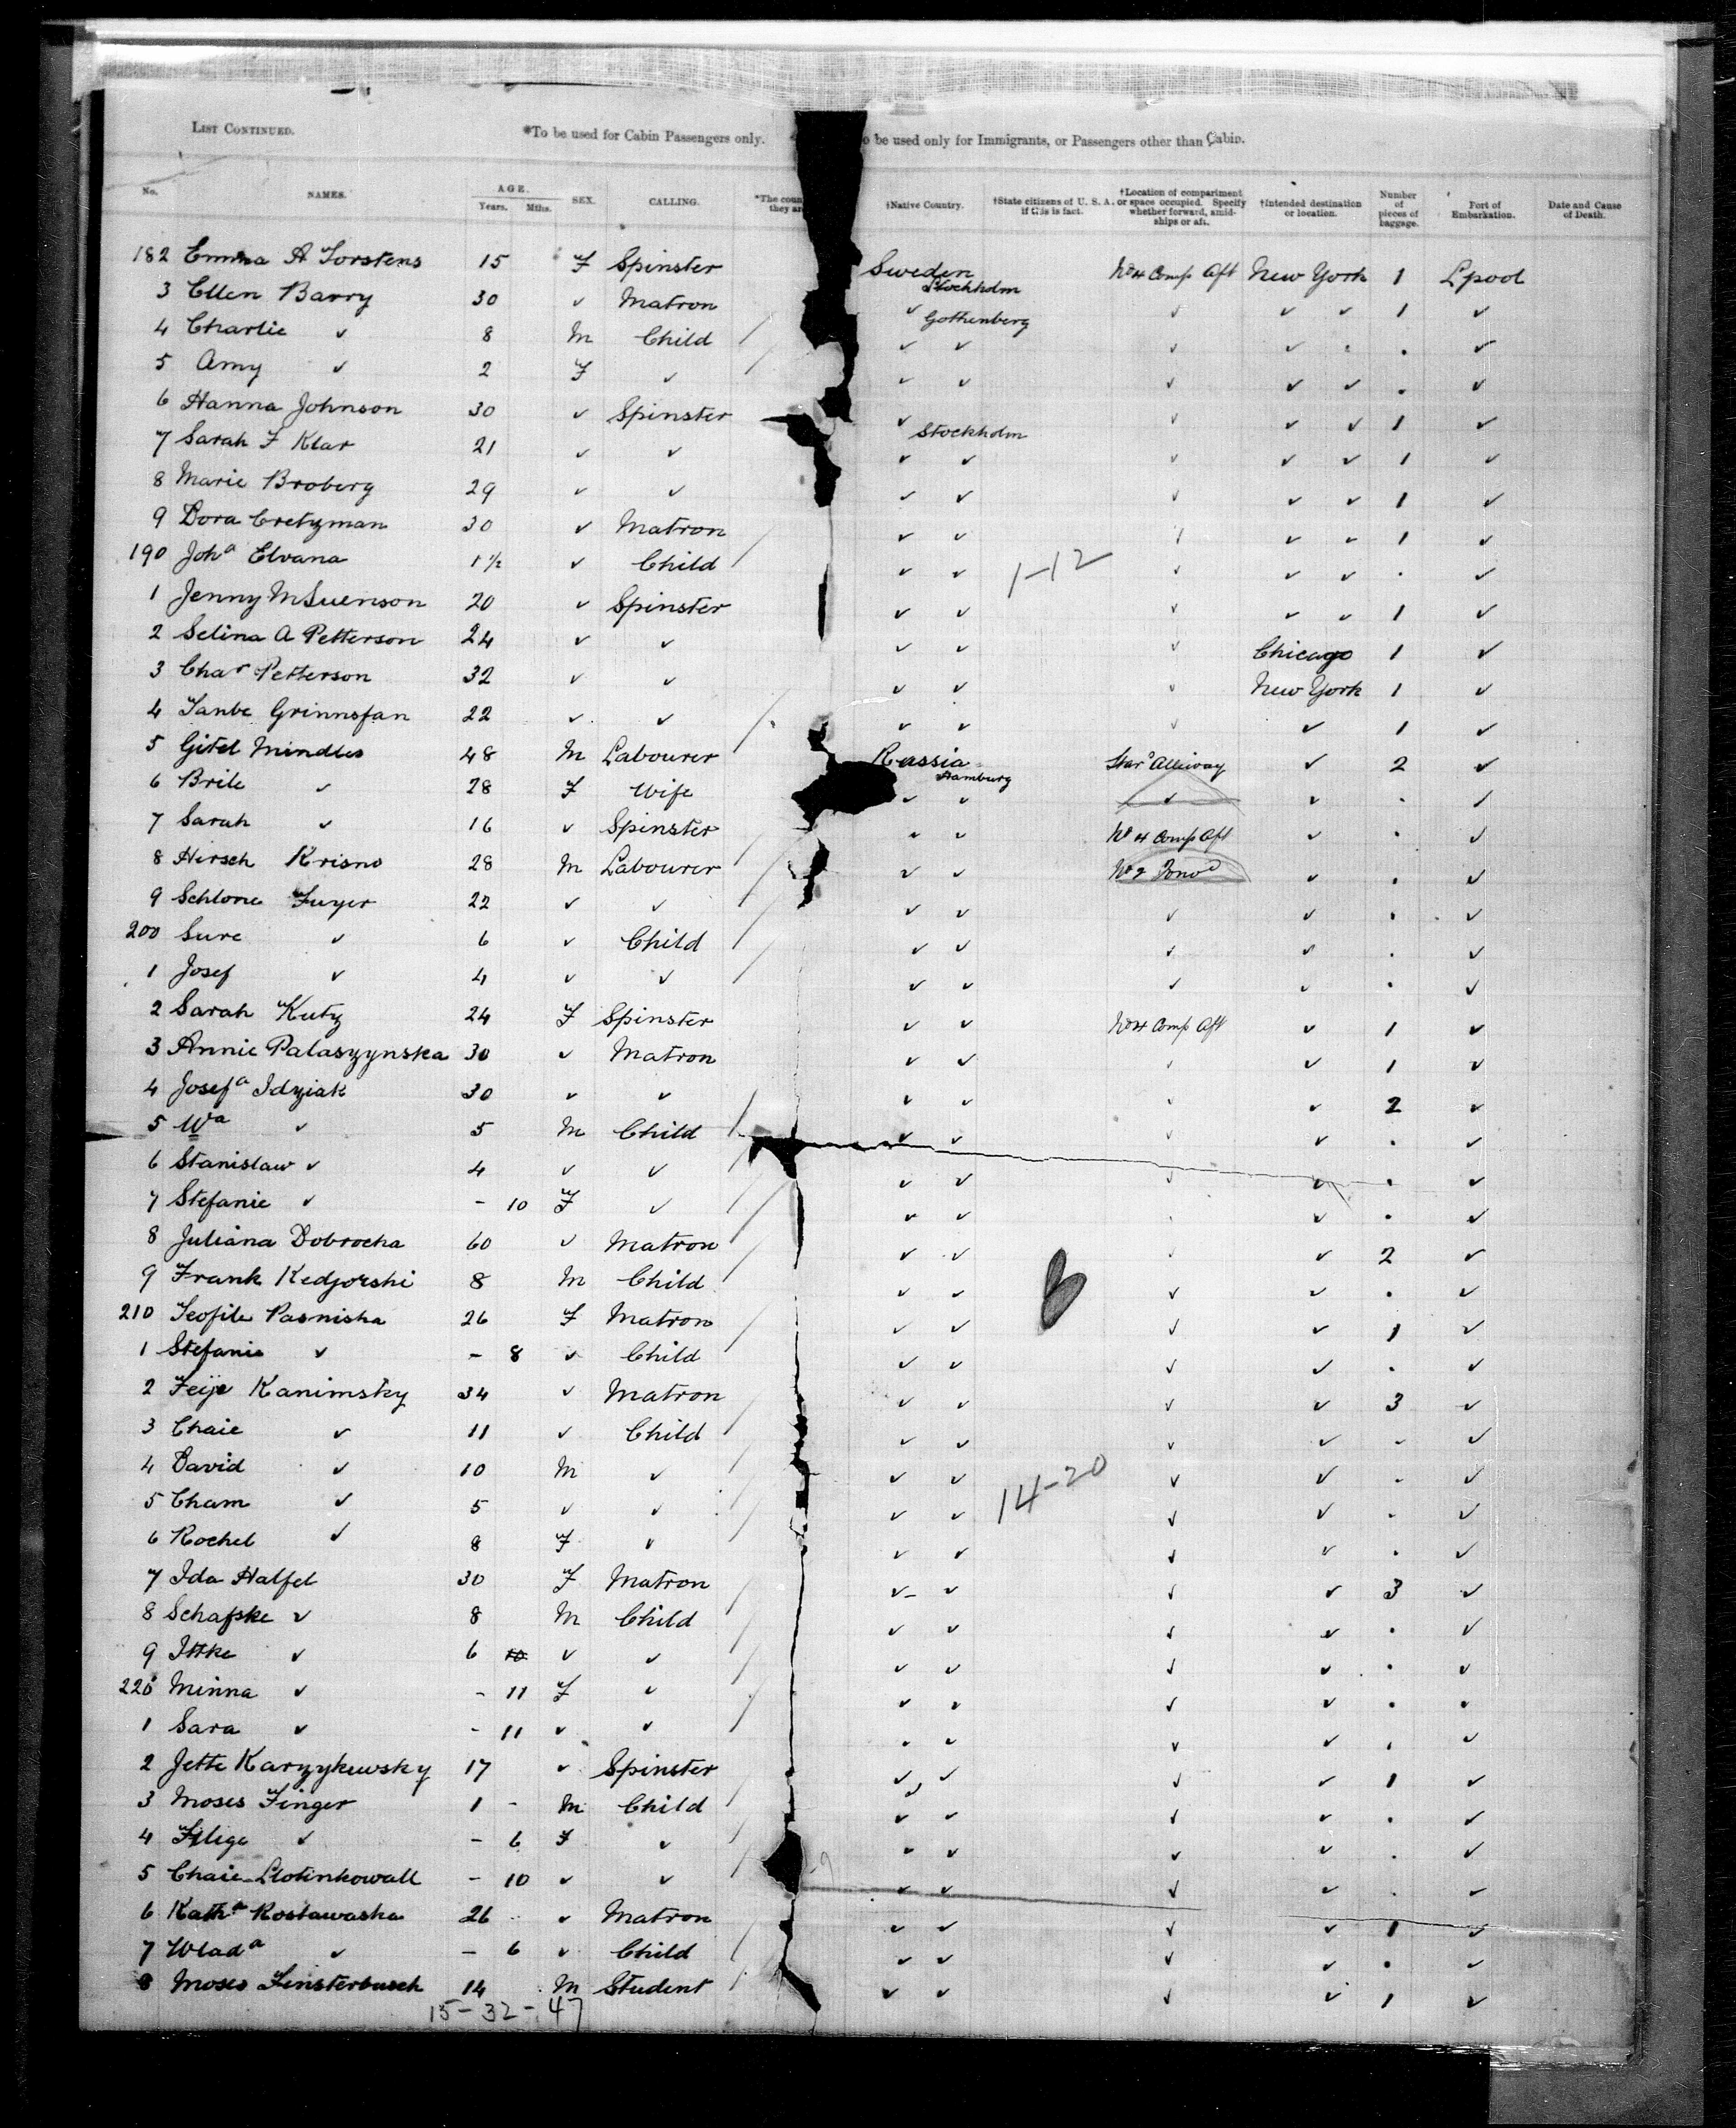 LIST CONTINUED. *To be used for Cabin Passengers only. o be used only for Immigrants, or Passengers other than Cabin.
No. NAMES. AGE. Years. Mths. SEX. CALLING. *The coun they are †Native Country. †State citizens of U. S. A. if this is fact. †Location of compartment or space occupied. Specify whether forward, amidships or aft. †Intended destination or location. Number of pieces of baggage. Port of Embarkation. Date and Cause of Death.
182 Emma A Torstens 15 F Spinster Sweden Stockholm No 4 Comp Aft New York 1 Lpool
3 Ellen Barry 30 ✓ Matron ✓ Gothenberg ✓ ✓ ✓ 1 ✓
4 Charlie ✓ 8 M Child ✓ ✓ ✓ ✓ ✓ . ✓
5 Amy ✓ 2 F ✓ ✓ ✓ ✓ ✓ ✓ . ✓
6 Hanna Johnson 30 ✓ Spinster ✓ Stockholm ✓ ✓ ✓ 1 ✓
7 Sarah F Klar 21 ✓ ✓ ✓ ✓ ✓ ✓ ✓ 1 ✓
8 Marie Broberg 29 ✓ ✓ ✓ ✓ ✓ ✓ ✓ 1 ✓
9 Dora Cretzman 30 ✓ Matron ✓ ✓ ✓ ✓ ✓ 1 ✓
190 Joha Elvana 1½ ✓ Child ✓ ✓ 1-12 ✓ ✓ ✓ . ✓
1 Jenny M Suenson 20 ✓ Spinster ✓ ✓ ✓ ✓ ✓ 1 ✓
2 Selina A Petterson 24 ✓ ✓ ✓ ✓ ✓ Chicago 1 ✓
3 Chas Petterson 32 ✓ ✓ ✓ ✓ ✓ New York 1 ✓
4 Tanbe Grinnsfan 22 ✓ ✓ ✓ ✓ ✓ ✓ 1 ✓
5 Gitel Mindles 48 M Labourer Russia Hamburg Star Alleway ✓ 2 ✓
6 Brile ✓ 28 F Wife ✓ ✓ ✓ ✓ . ✓
7 Sarah ✓ 16 ✓ Spinster ✓ ✓ No 4 Comp Aft ✓ . ✓
8 Hirsch Krisno 28 M Labourer ✓ ✓ No 2 Forwd ✓ . ✓
9 Schlone Fuyer 22 ✓ ✓ ✓ ✓ ✓ ✓ . ✓
200 Sure ✓ 6 ✓ Child ✓ ✓ ✓ ✓ . ✓
1 Josef ✓ 4 ✓ ✓ ✓ ✓ ✓ ✓ . ✓
2 Sarah Kutz 24 F Spinster ✓ ✓ No 4 Comp Aft ✓ 1 ✓
3 Annie Palaszynska 30 ✓ Matron ✓ ✓ ✓ ✓ 1 ✓
4 Josefa Idziak 30 ✓ ✓ ✓ ✓ ✓ ✓ 2 ✓
5 Wa ✓ 5 M Child ✓ ✓ ✓ ✓ . ✓
6 Stanislaw ✓ 4 ✓ ✓ ✓ ✓ ✓ ✓ . ✓
7 Stefanie ✓ - 10 F ✓ ✓ ✓ . ✓ . ✓
8 Juliana Dobrocha 60 ✓ Matron ✓ ✓ ✓ ✓ 2 ✓
9 Frank Kedjorshi 8 M Child ✓ ✓ ✓ ✓ . ✓
210 Teofile Pasnisha 26 F Matron ✓ ✓ ✓ ✓ 1 ✓
1 Stefanie ✓ - 8 ✓ Child ✓ ✓ ✓ ✓ . ✓
2 Feije Kanimsky 34 ✓ Matron ✓ ✓ ✓ ✓ 3 ✓
3 Chaie ✓ 11 ✓ Child ✓ ✓ ✓ ✓ - ✓
4 David ✓ 10 M ✓ ✓ ✓ 14-20 ✓ ✓ - ✓
5 Cham ✓ 5 ✓ ✓ ✓ ✓ ✓ ✓ - ✓
6 Rochel ✓ 8 F ✓ ✓ ✓ ✓ ✓ . ✓
7 Ida Halfel 30 F Matron ✓ ✓ ✓ ✓ 3 ✓
8 Schafske ✓ 8 M Child ✓ ✓ ✓ ✓ . ✓
9 Ittke ✓ 6 10 ✓ ✓ ✓ ✓ ✓ ✓ . ✓
220 Minna ✓ - 11 F ✓ ✓ ✓ ✓ ✓ . ✓
1 Sara ✓ - 11 ✓ ✓ ✓ ✓ ✓ ✓ . ✓
2 Jette Karzykewsky 17 ✓ Spinster ✓ ✓ ✓ ✓ 1 ✓
3 Moses Finger 1 - M Child ✓ ✓ ✓ ✓ . ✓
4 Filige ✓ - 6 F ✓ ✓ ✓ ✓ ✓ . ✓
5 Chaie Llotinkowall - 10 ✓ ✓ ✓ ✓ ✓ ✓ . ✓
6 Katha Rostawaska 26 ✓ Matron ✓ ✓ ✓ ✓ 1 ✓
7 Wlada ✓ - 6 ✓ Child ✓ ✓ ✓ ✓ . ✓
8 Moses Finsterbusch 14 M Student ✓ ✓ ✓ ✓ 1 ✓
15-32-47